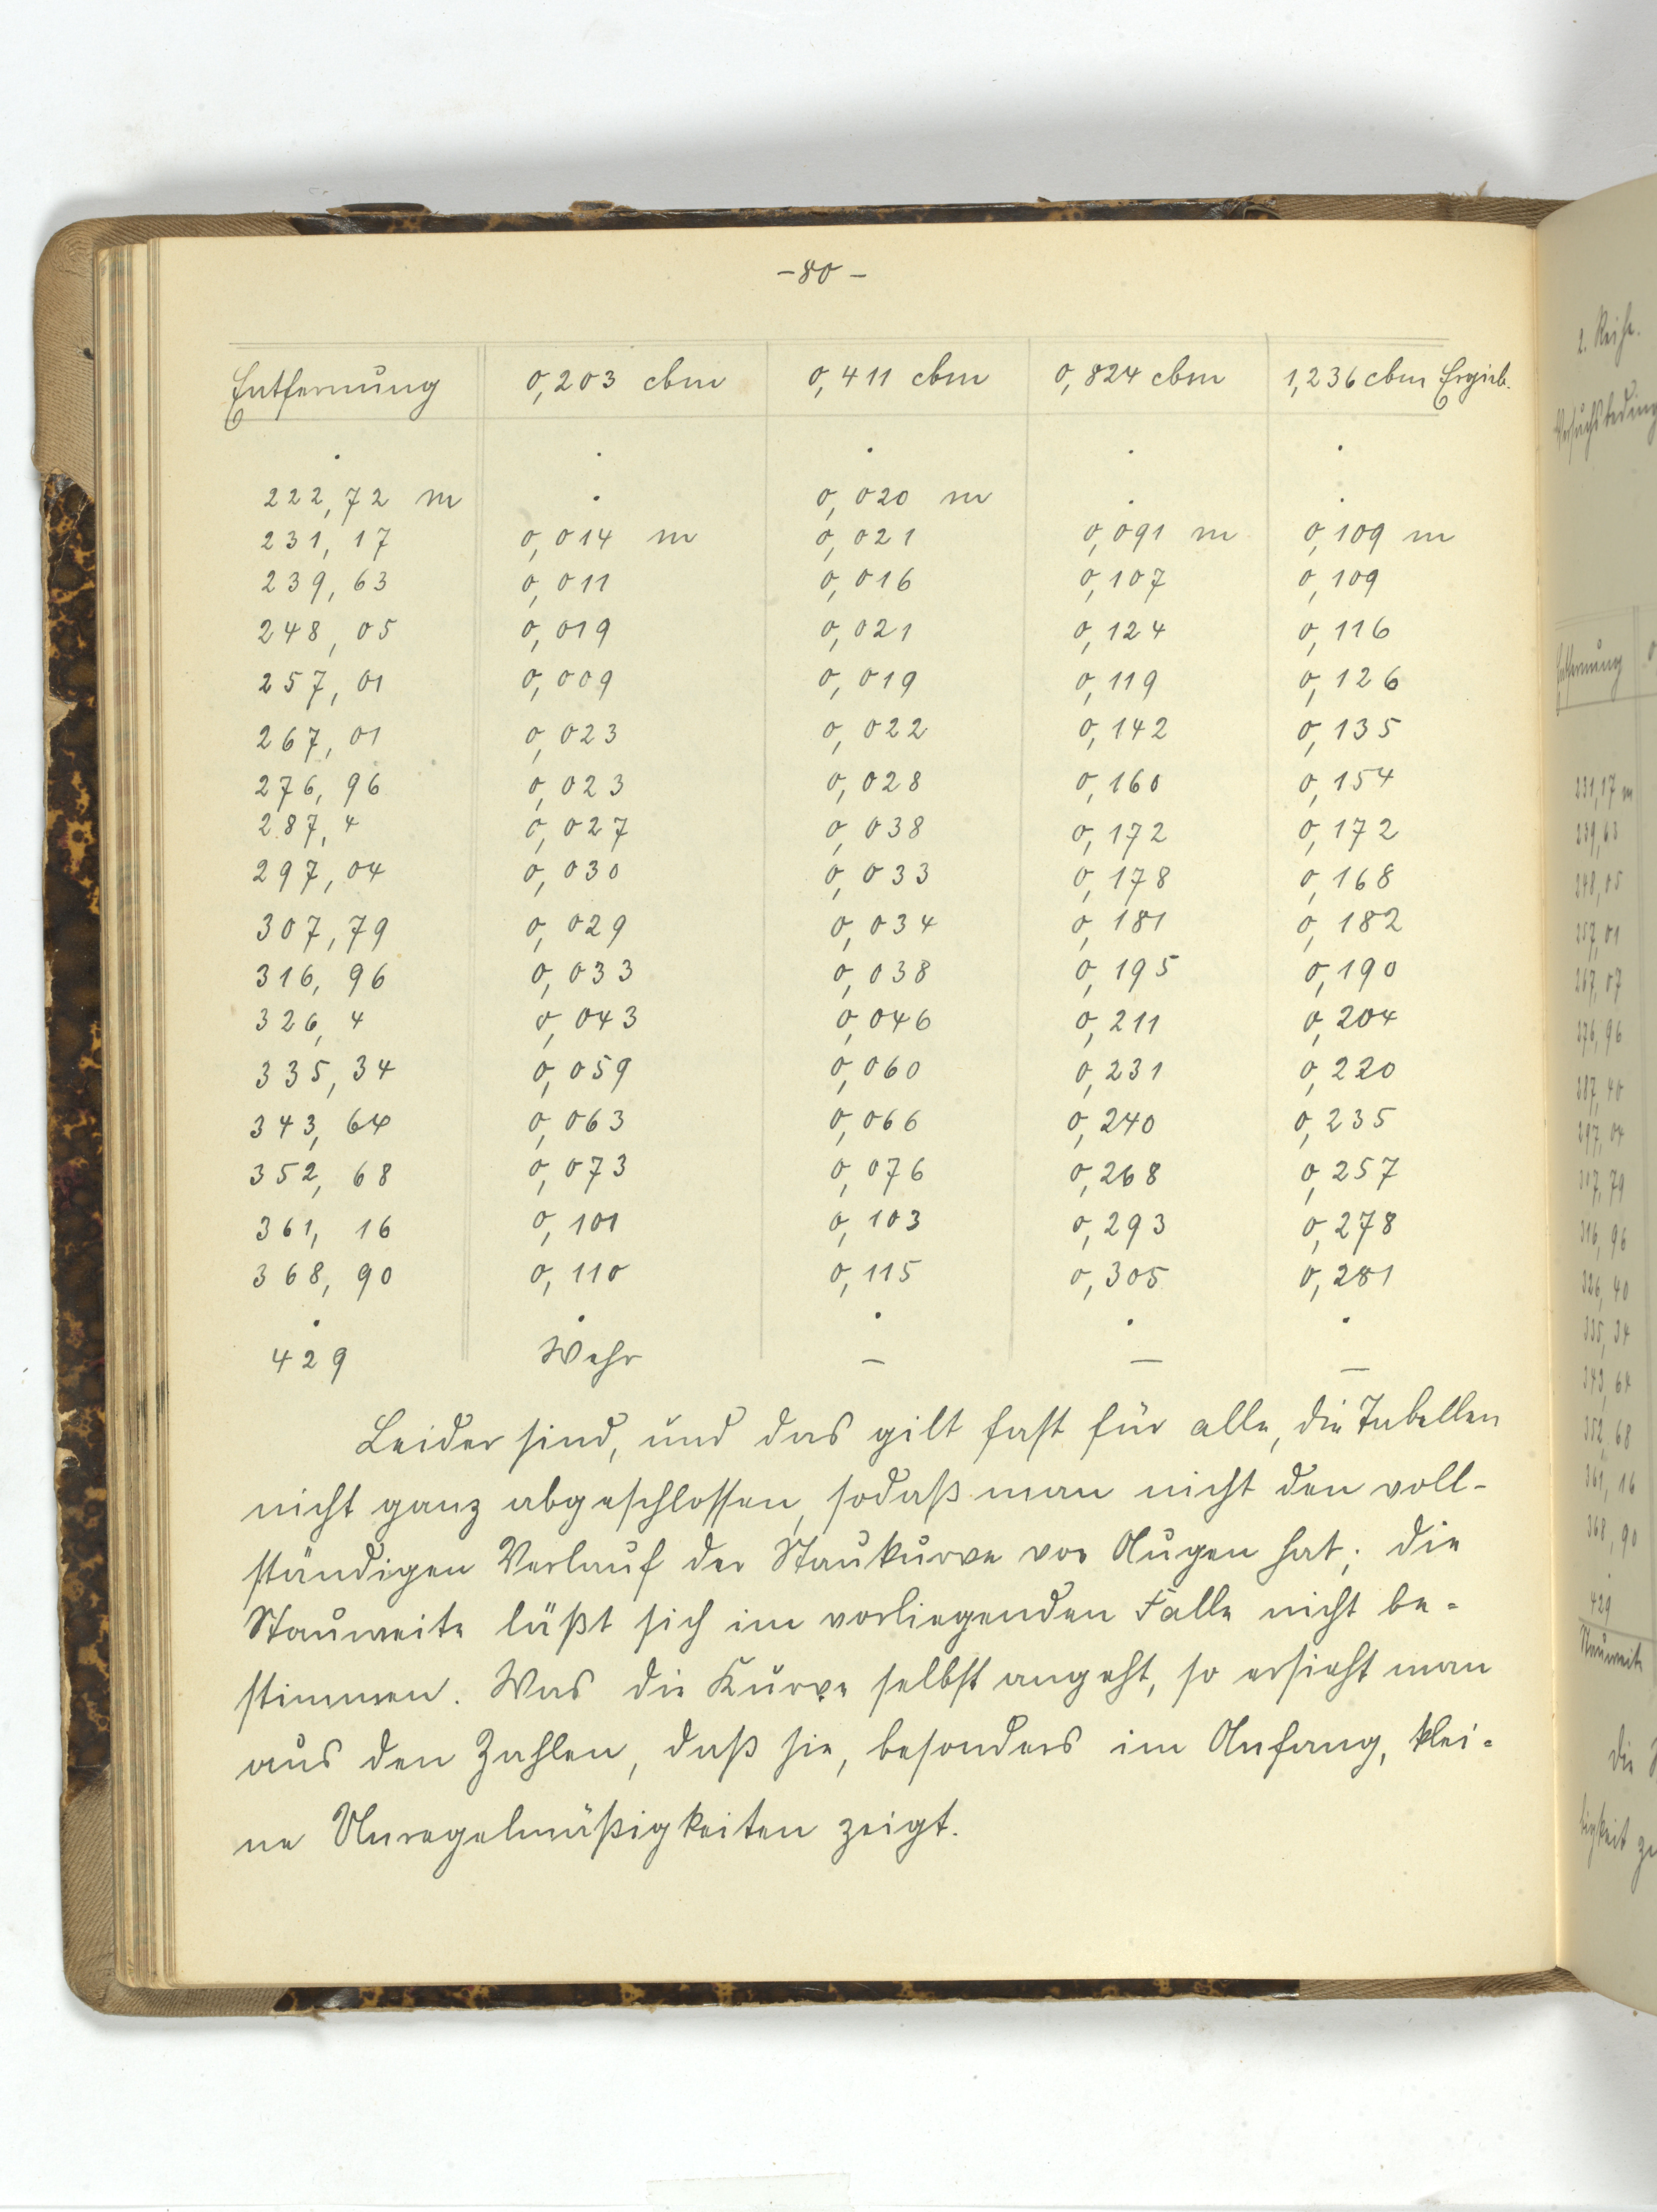 -80-
Entfernung 0,203 cbm 0,411 cbm 0,824 cbm 1,236 cbm Ergieb.
. . . . .
222,72 m . 0,020 m . .
231,17 0,014 m 0,021 0,091 m 0,109 m
239,63 0,011 0,016 0,107 0,109
248,05 0,019 0,021 0,124 0,116
257,01 0,009 0,019 0,119 0,126
267,01 0,023 0,022 0,142 0,135
276,96 0,023 0,028 0,160 0,154
287,4 0,027 0,038 0,172 0,172
297,04 0,030 0,033 0,178 0,168
307,79 0,029 0,034 0,181 0,182
316,96 0,033 0,038 0,195 0,190
326,4 0,043 0,046 0,211 0,204
335,34 0,059 0,060 0,231 0,220
343,64 0,063 0,066 0,240 0,235
352,68 0,073 0,076 0,268 0,257
361,16 0,101 0,103 0,293 0,278
368,90 0,110 0,115 0,305 0,281
. . . . .
429 Wehr — — —
Leider sind, und das gilt fast für alle, die Tabellen
nicht ganz abgeschlossen, sodaß man nicht den voll-
ständigen Verlauf der Staukurve vor Augen hat; die
Stauweite läßt sich im vorliegenden Falle nicht be-
stimmen. Was die Kurve selbst angeht, so ersieht man
aus den Zahlen, daß sie, besonders im Anfang, klei-
ne Unregelmäßigkeiten zeigt.
2. Reihe.
Entfernung
231,17 m
239,63
248,05
257,01
267,07
276,96
287,40
297,04
307,79
316,96
326,40
335,34
343,64
352,68
361,16
368,90
.
429
Stauweite
die